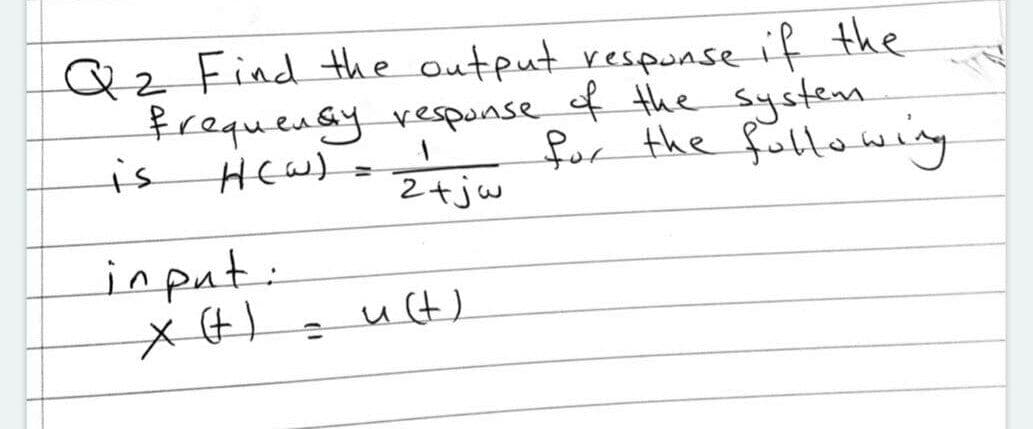 Q2 Find the output response if the
frequency response of the system
is H(w) = 1/(2+jw) for the following
input:
x(t) = u(t)